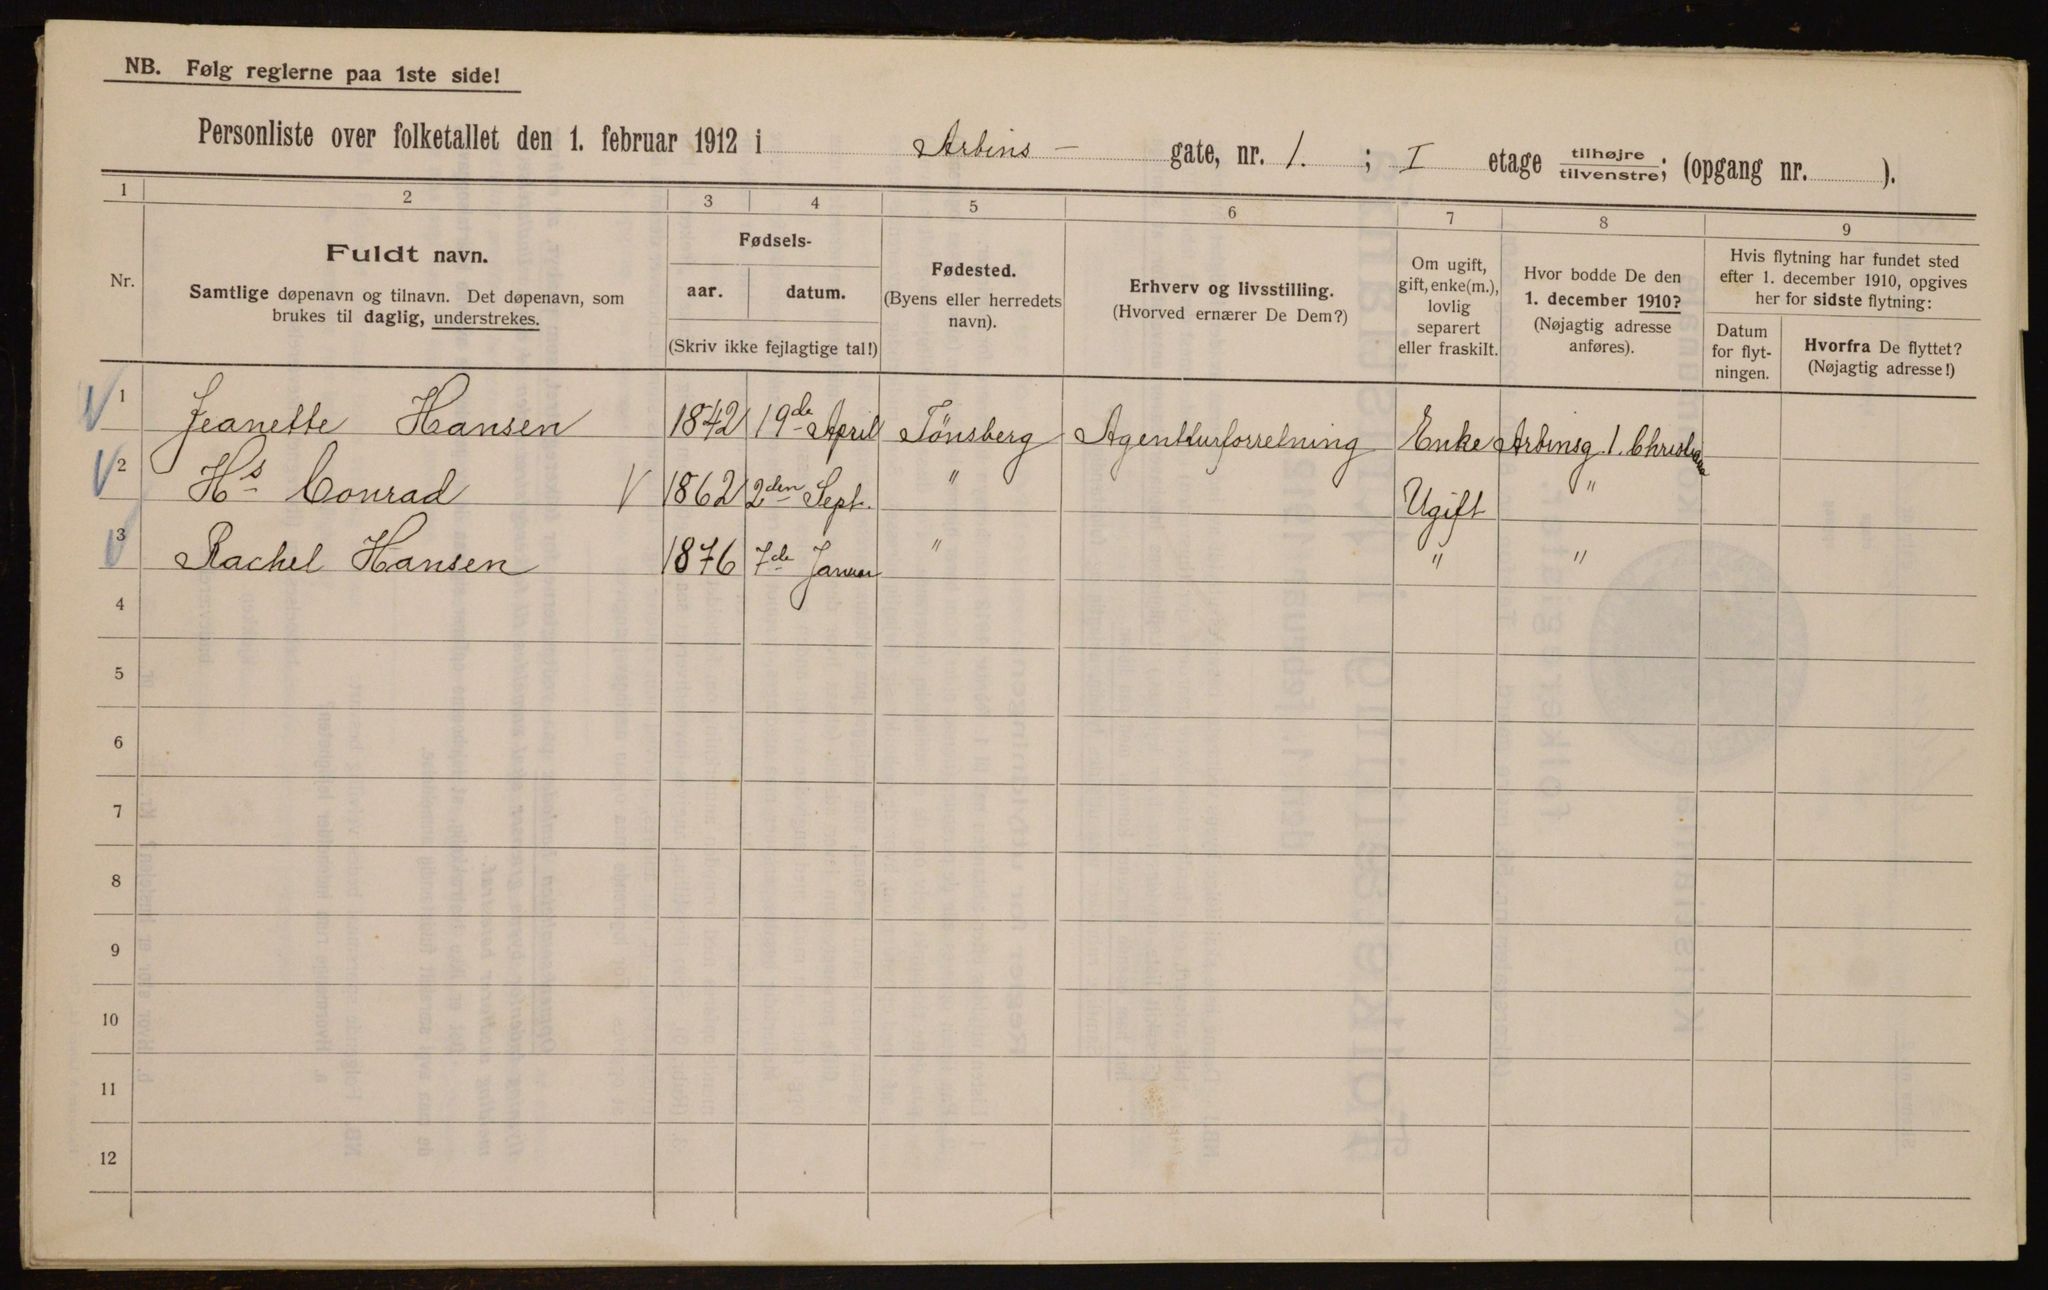 NB. Følg reglerne paa 1ste side!
Personliste over folketallet den 1. februar 1912 i Arbins - gate, nr. 1. ; I etage tilhøjre/tilvenstre; (opgang nr. ).
1 2 3 4 5 6 7 8 9
Nr.
Fuldt navn.
Samtlige døpenavn og tilnavn. Det døpenavn, som
brukes til daglig, understrekes.
Fødsels-
aar. datum.
(Skriv ikke fejlagtige tal!)
Fødested.
(Byens eller herredets
navn).
Erhverv og livsstilling.
(Hvorved ernærer De Dem?)
Om ugift,
gift, enke(m.),
lovlig
separert
eller fraskilt.
Hvor bodde De den
1. december 1910?
(Nøjagtig adresse
anføres).
Hvis flytning har fundet sted
efter 1. december 1910, opgives
her for sidste flytning:
Datum
for flyt-
ningen.
Hvorfra De flyttet?
(Nøjagtig adresse!)
1 Jeanette Hansen 1842 19de April Tönsberg Agenturforretning Enke Arbinsg. 1. Christiania
2 Hs Conrad V 1862 2den Sept. " Ugift "
3 Rachel Hansen 1876 7de Januar " " "
4
5
6
7
8
9
10
11
12